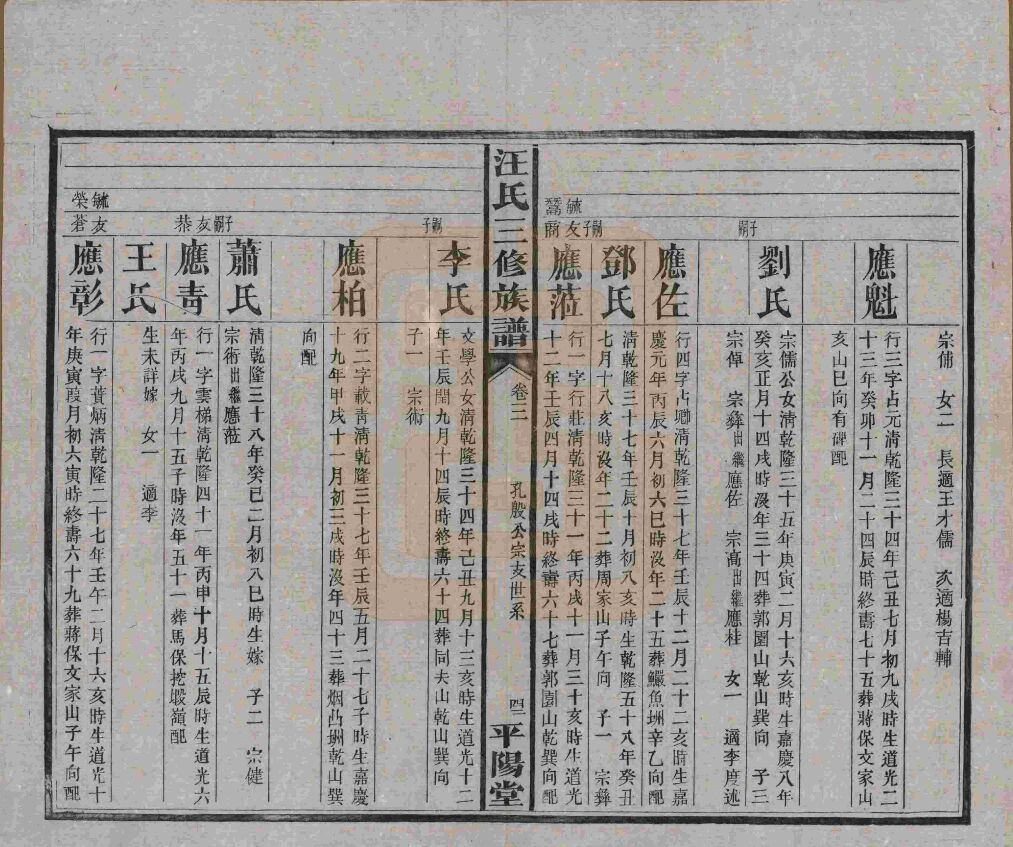 宗俌　女二　長適王才儒　次適楊吉輔
應魁
行三字占元清乾隆三十四年己丑七月初九戌時生道光二
十三年癸卯十一月二十四辰時終壽七十五葬蔣保文家山
亥山巳向有碑配
子嗣
劉氏
宗儒公女清乾隆三十五年庚寅二月十六亥時生嘉慶八年
癸亥正月十四戌時沒年三十四葬郭園山乾山巽向　子三
宗倬　宗彝出繼應佐　宗高出繼應桂　女一　適李度述
應佐
行四字占卿清乾隆三十七年壬辰十二月二十二亥時生嘉
慶元年丙辰六月初六巳時沒年二十五葬鱺魚垇辛乙向配
嗣子
鄧氏
清乾隆三十七年壬辰十月初八亥時生乾隆五十八年癸丑
七月十八亥時沒年二十二葬周家山子午向　子一　宗彝
毓鬵
友商
應蒞
行一字行莊清乾隆三十一年丙戌十一月三十亥時生道光
十二年壬辰四月十四戌時終壽六十七葬郭園山乾巽向配
汪氏三修族譜
卷三
孔殷公宗支世系
四二
平陽堂
嗣子
李氏
文學公女清乾隆三十四年己丑九月十三亥時生道光十二
年壬辰閏九月十四辰時終壽六十四葬同夫山乾山巽向
子一　宗術
應柏
行二字載青清乾隆三十七年壬辰五月二十七子時生嘉慶
十九年甲戌十一月初三戌時沒年四十三葬烟凸垇乾山巽
向配
子嗣
蕭氏
清乾隆三十八年癸巳二月初八巳時生嫁　子二　宗健
宗術出繼應蒞
友恭
應青
行一字雲梯清乾隆四十一年丙申十月十五辰時生道光六
年丙戌九月十五子時沒年五十一葬馬保挖塅嶺配
王氏
生未詳嫁　女一　適李
毓榮
友蒼
應彰
行一字蕢炳清乾隆二十七年壬午二月十六亥時生道光十
年庚寅葭月初六寅時終壽六十九葬蔣保文家山子午向配